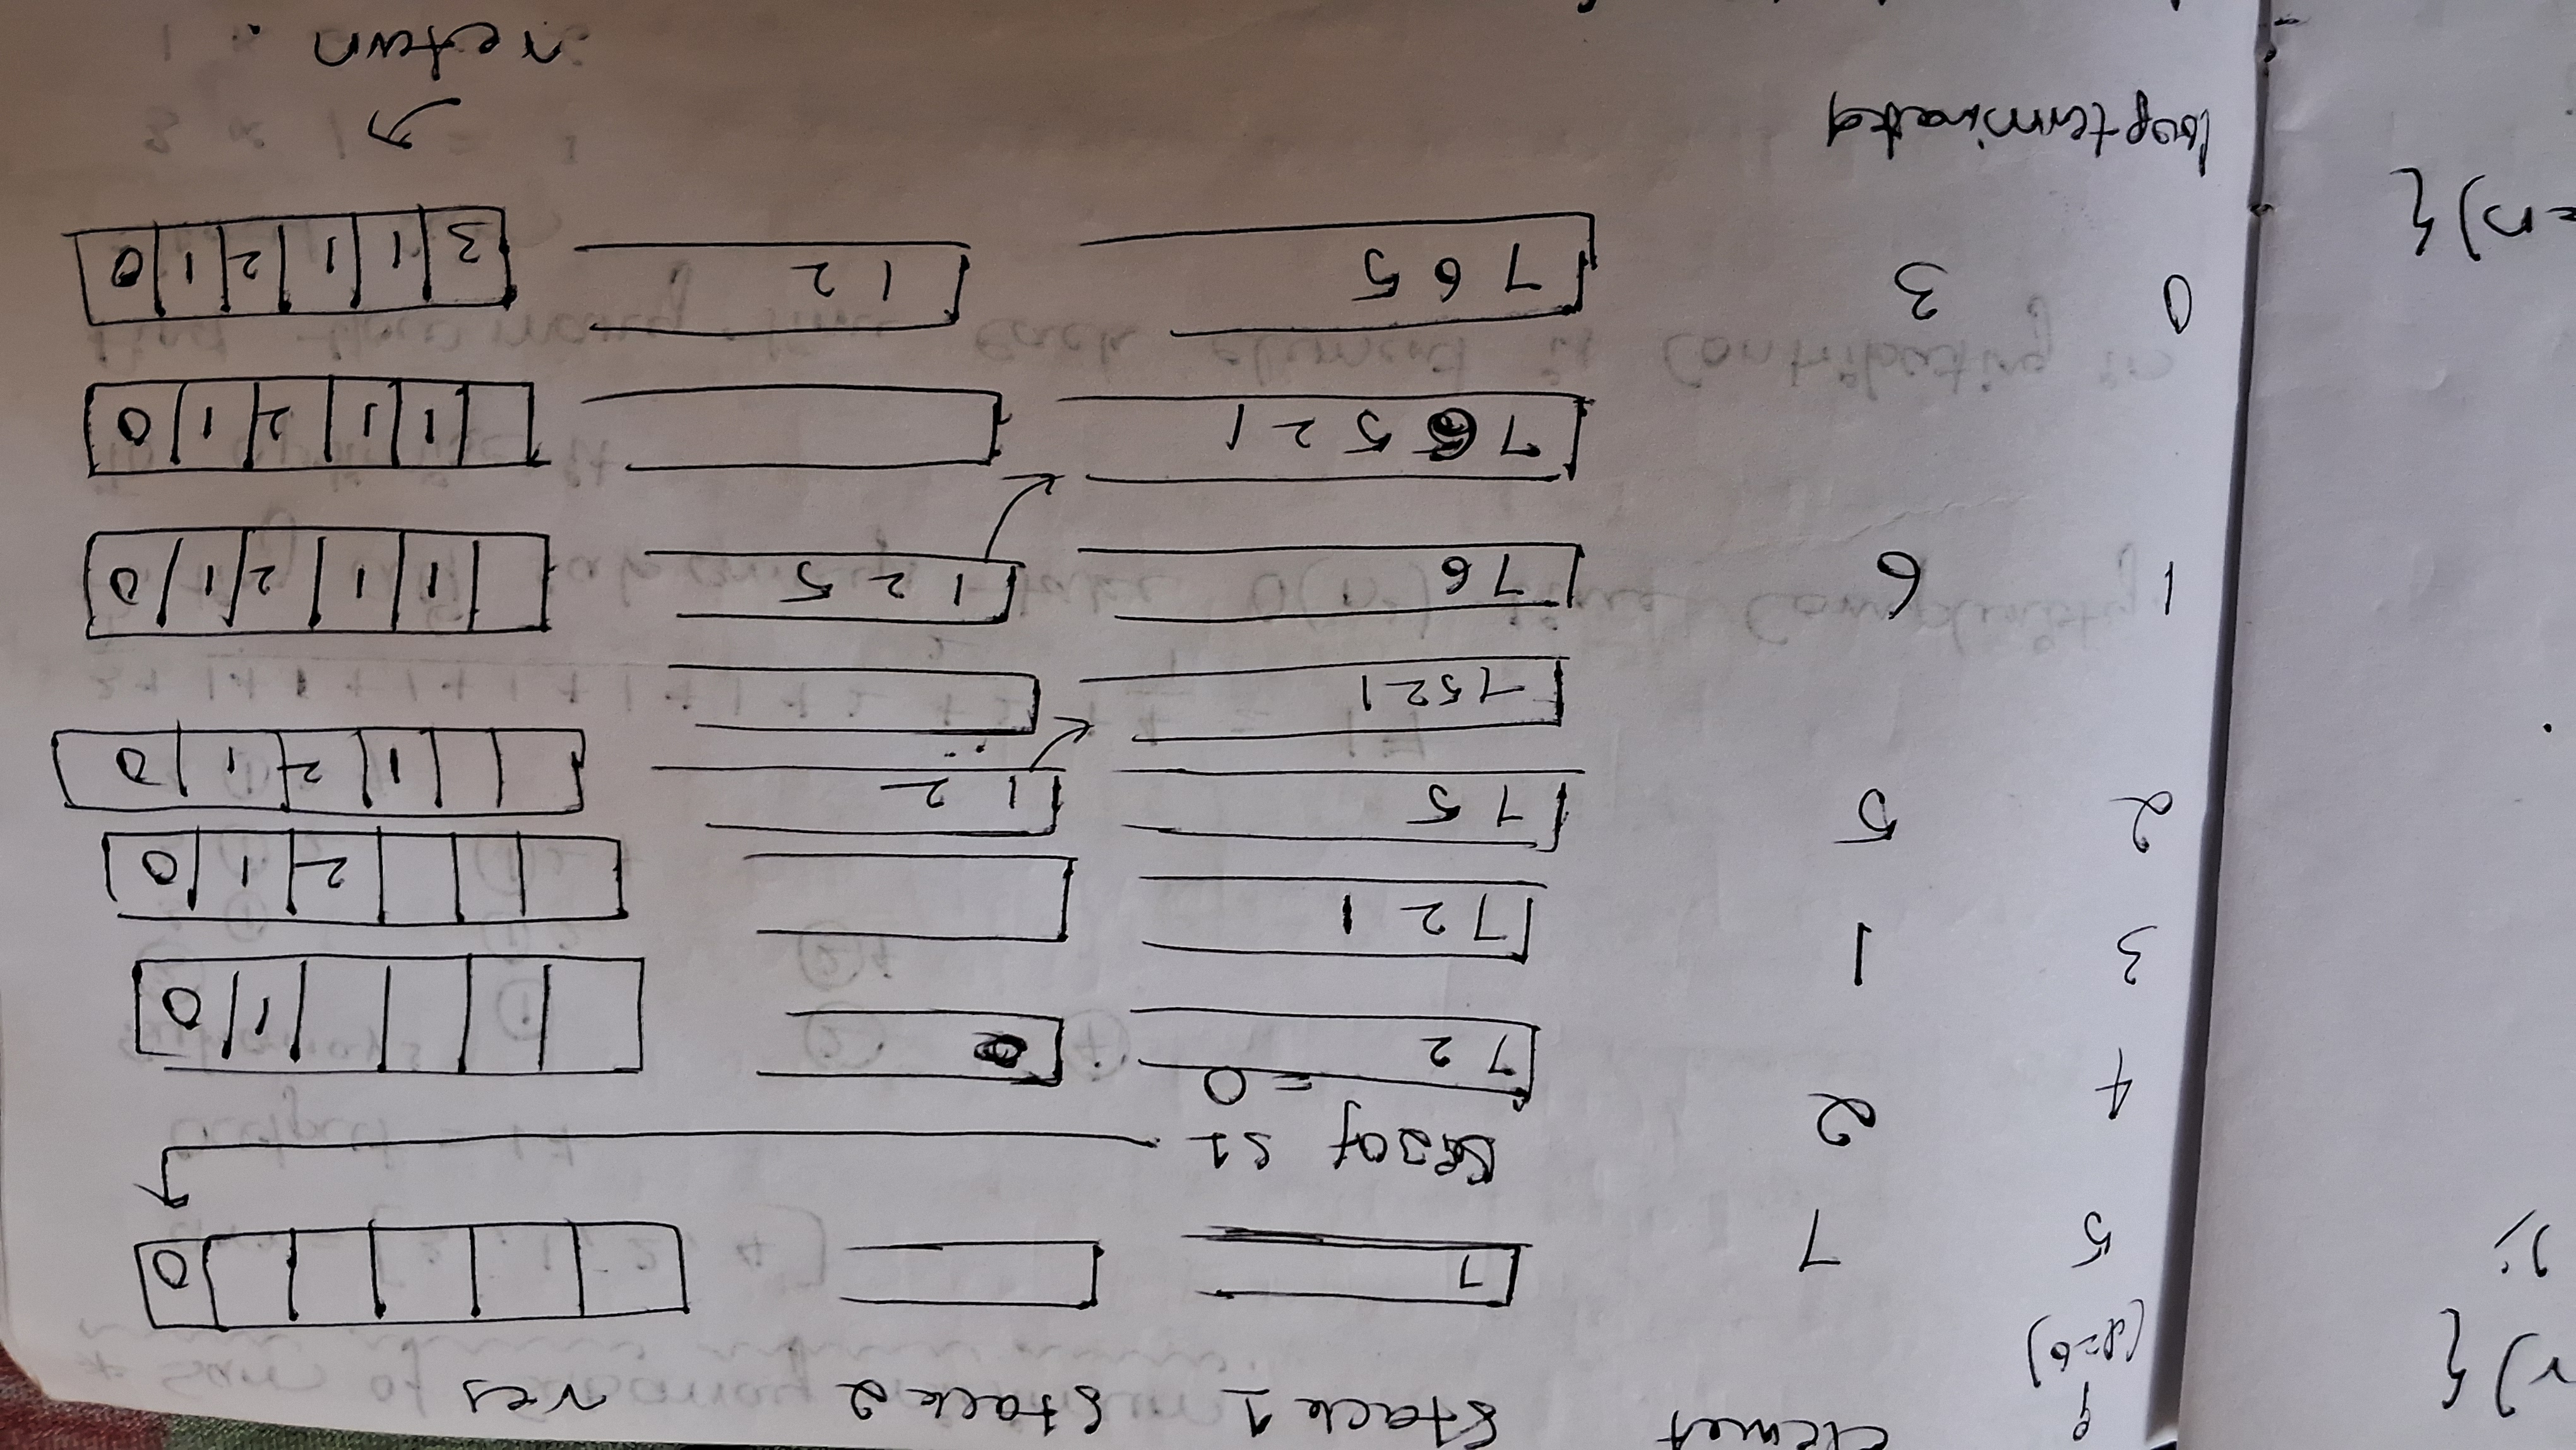 element Stack 1 Stack 2 res
r) {
5 7 7 0
);
size of S1 = 0
4 2 7 2 1 0
3 1 7 2 1 2 1 0
2 5 7 5 1 2 1 2 1 0
7 5 2 1
1 6 7 6 1 2 5 1 1 2 1 0
7 6 5 2 1 1 1 2 1 0
0 3 7 6 5 1 2 3 1 1 2 1 0
=n) {
loop terminated
return.